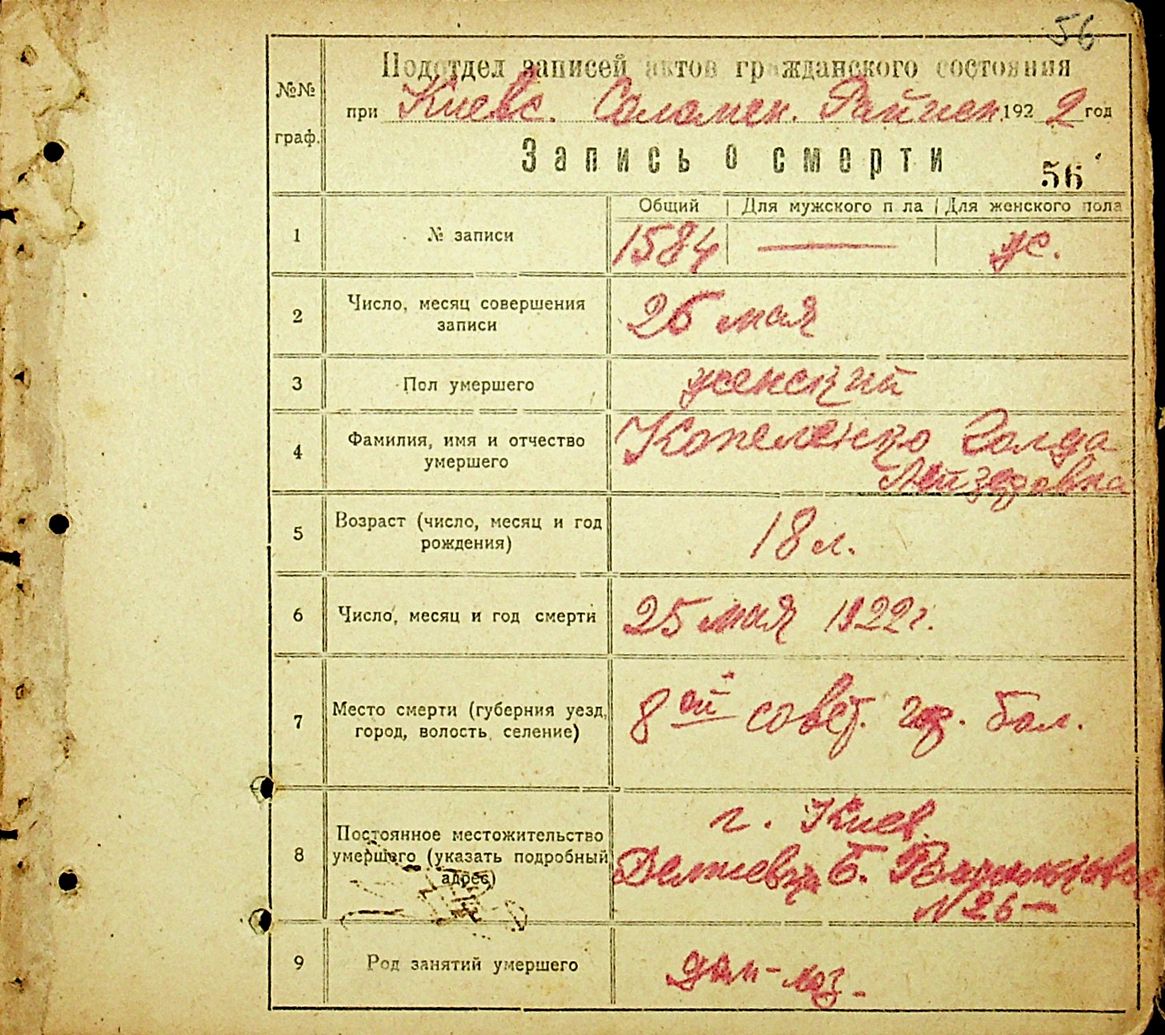 56
№№ граф.
Подотдел записей актов гражданского состояния
при Киевс. Соломен. Райисп. 1922 год
Запись о смерти
56
Общий | Для мужского п ла | Для женского пола
1 № записи 1584 — ж.
2 Число, месяц совершения записи 26 мая
3 Пол умершего женский
4 Фамилия, имя и отчество умершего Копеленко Голда
Лейзеровна
5 Возраст (число, месяц и год рождения) 18 л.
6 Число, месяц и год смерти 25 мая 1922 г.
7 Место смерти (губерния уезд, город, волость, селение) 8ой совет. бол.
8 Постоянное местожительство умершего (указать подробный адрес) г. Киев.
Демиевка Б. Васильковс
№ 26 —
9 Род занятий умершего дом-хоз.